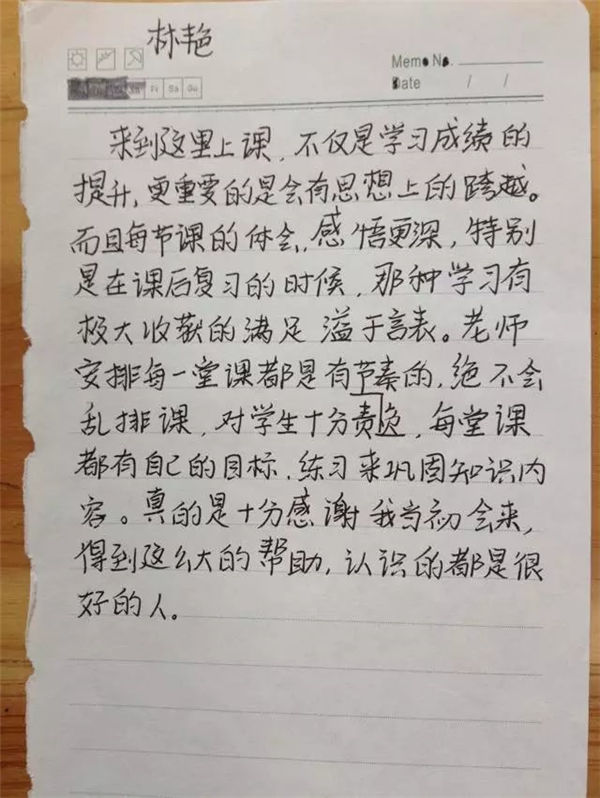 林艳
Memo No.
Date / /
Fr Sa Su
来到这里上课，不仅是学习成绩的
提升，更重要的是会有思想上的跨越。
而且每节课的体会，感悟更深，特别
是在课后复习的时候，那种学习有
极大收获的满足溢于言表。老师
安排每一堂课都是有节奏的，绝不会
乱排课，对学生十分责负，每堂课
都有自己的目标，练习来巩固知识内
容。真的是十分感谢我当初会来，
得到这么大的帮助，认识的都是很
好的人。